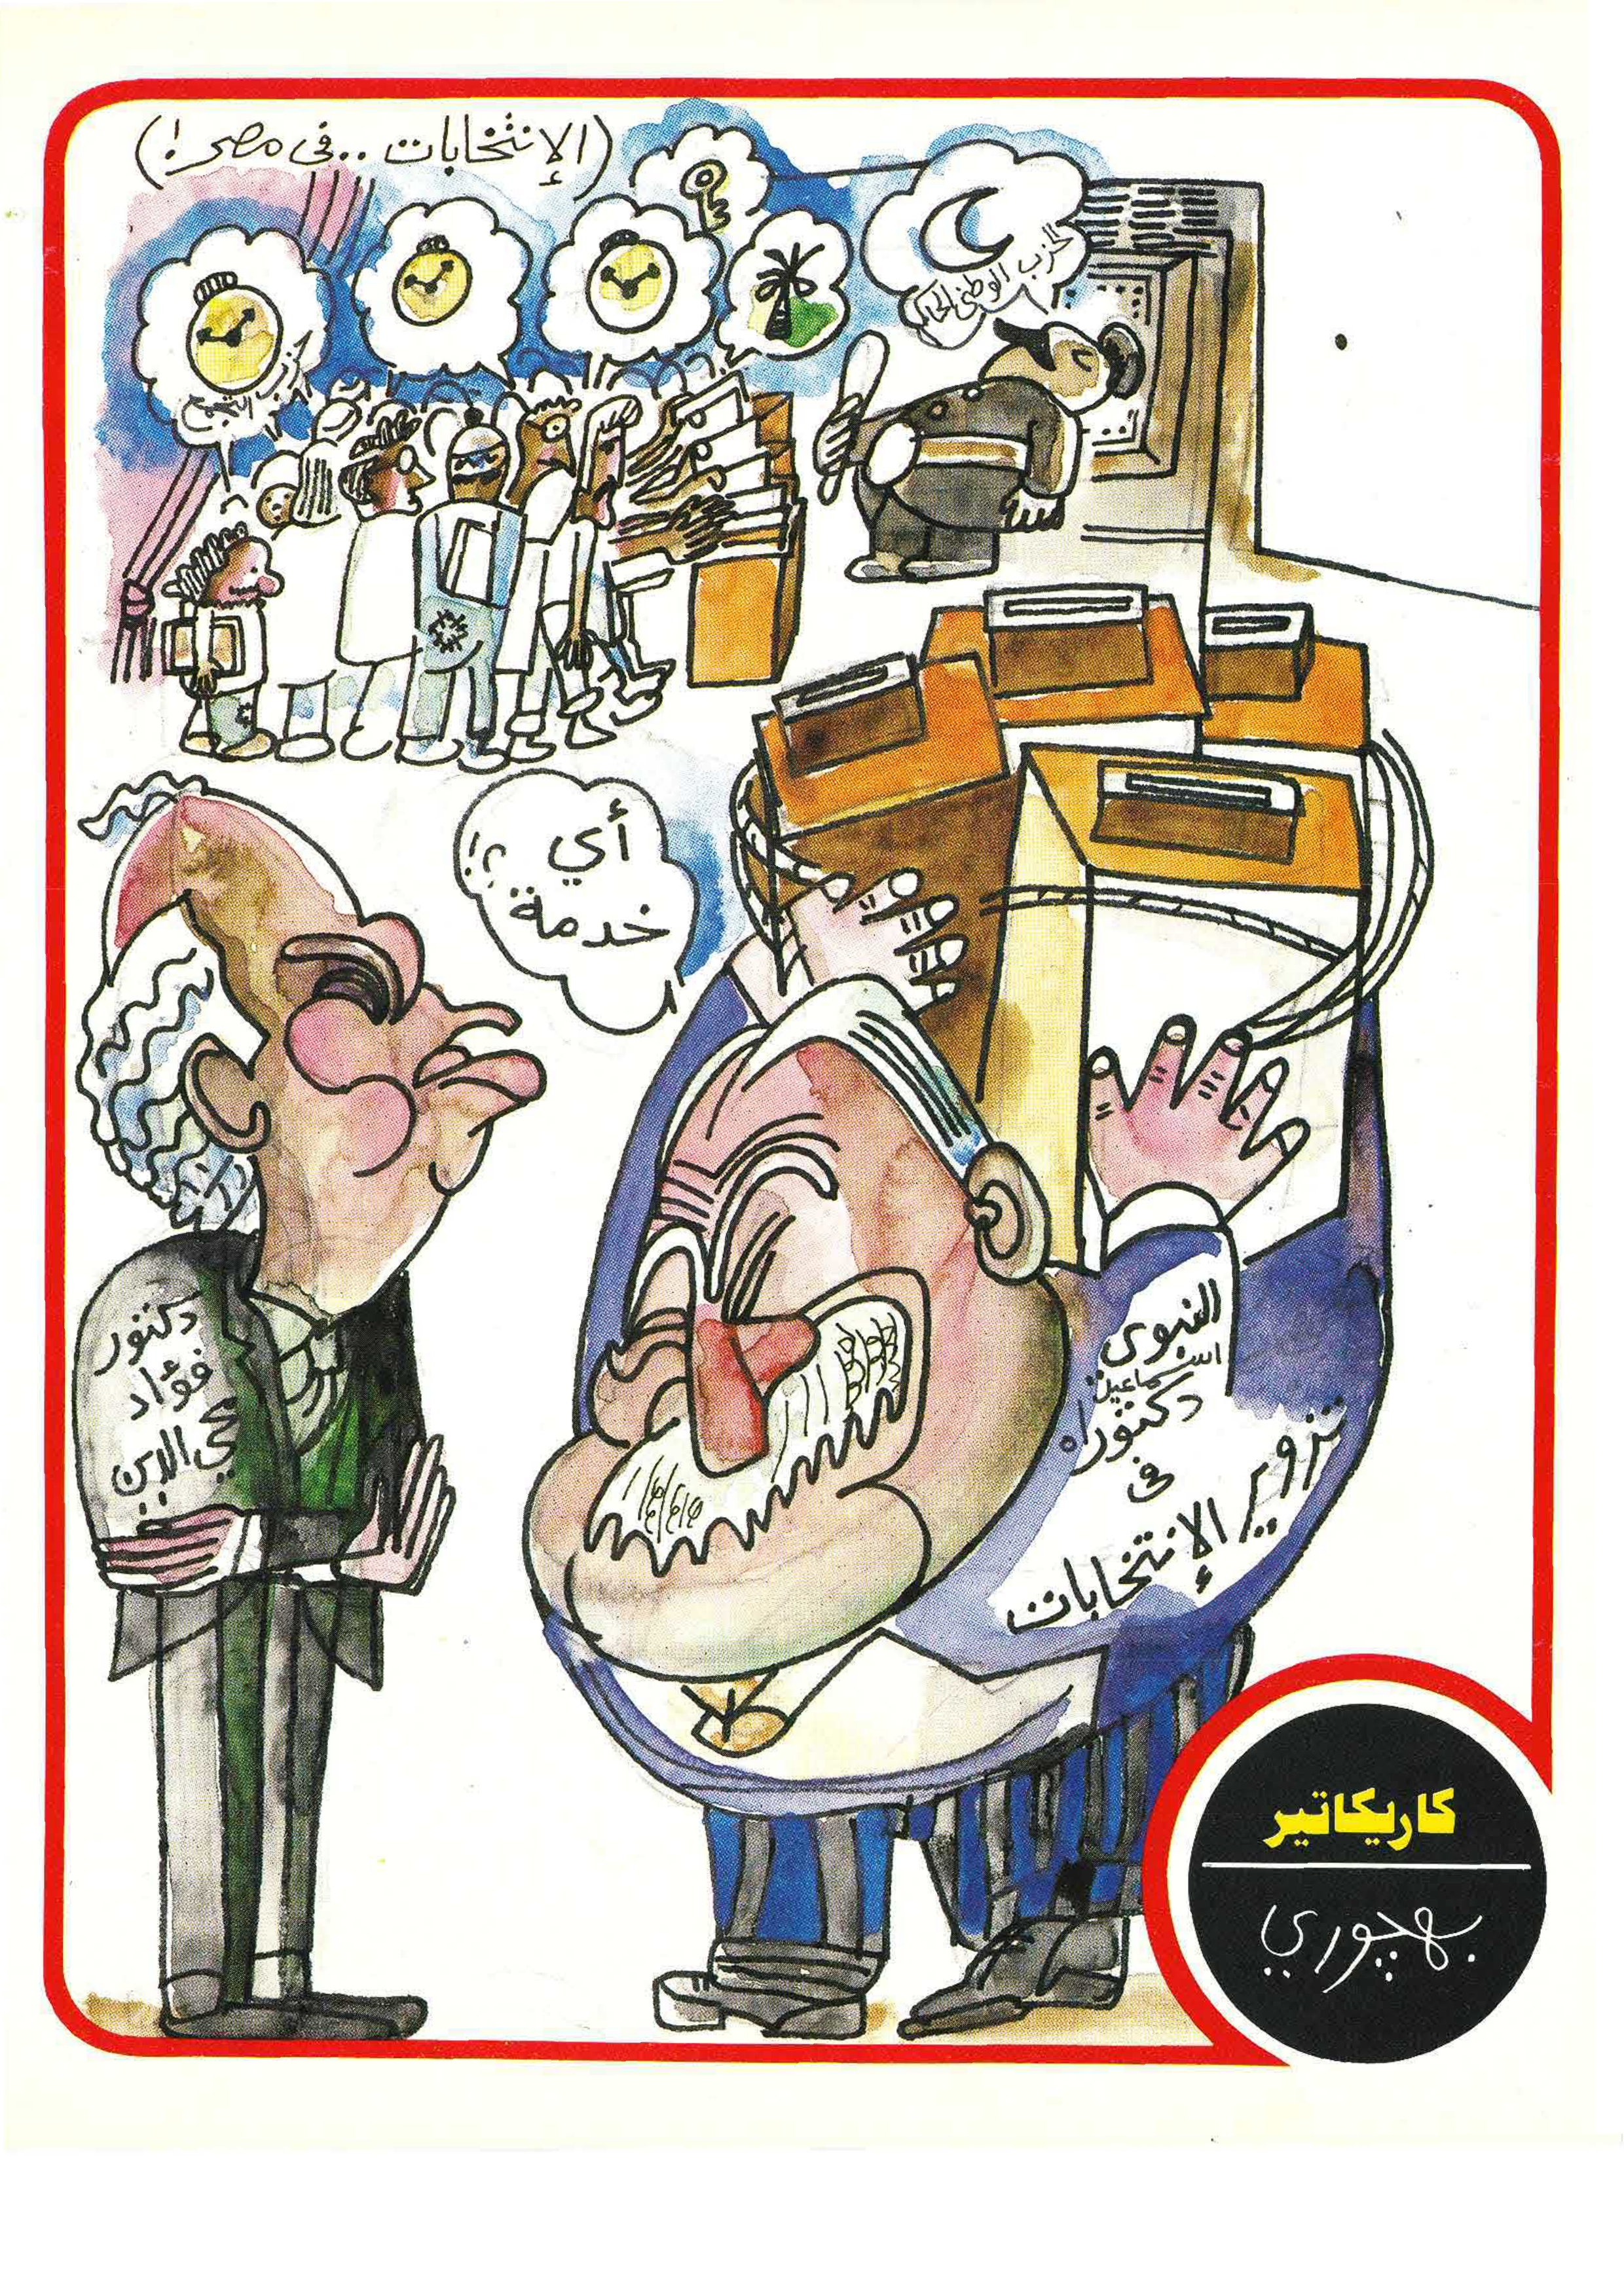 (الإنتخابات .. فى مصر !)
الحزب الوطنى الحاكم
حزب التجمع
أي
خدمة ؟!
دكتور
فؤاد
محي الدين
النبوى
اسماعيل
دكتوراه
فى
تزوير
الإنتخابات
كاريكاتير
بهجوري